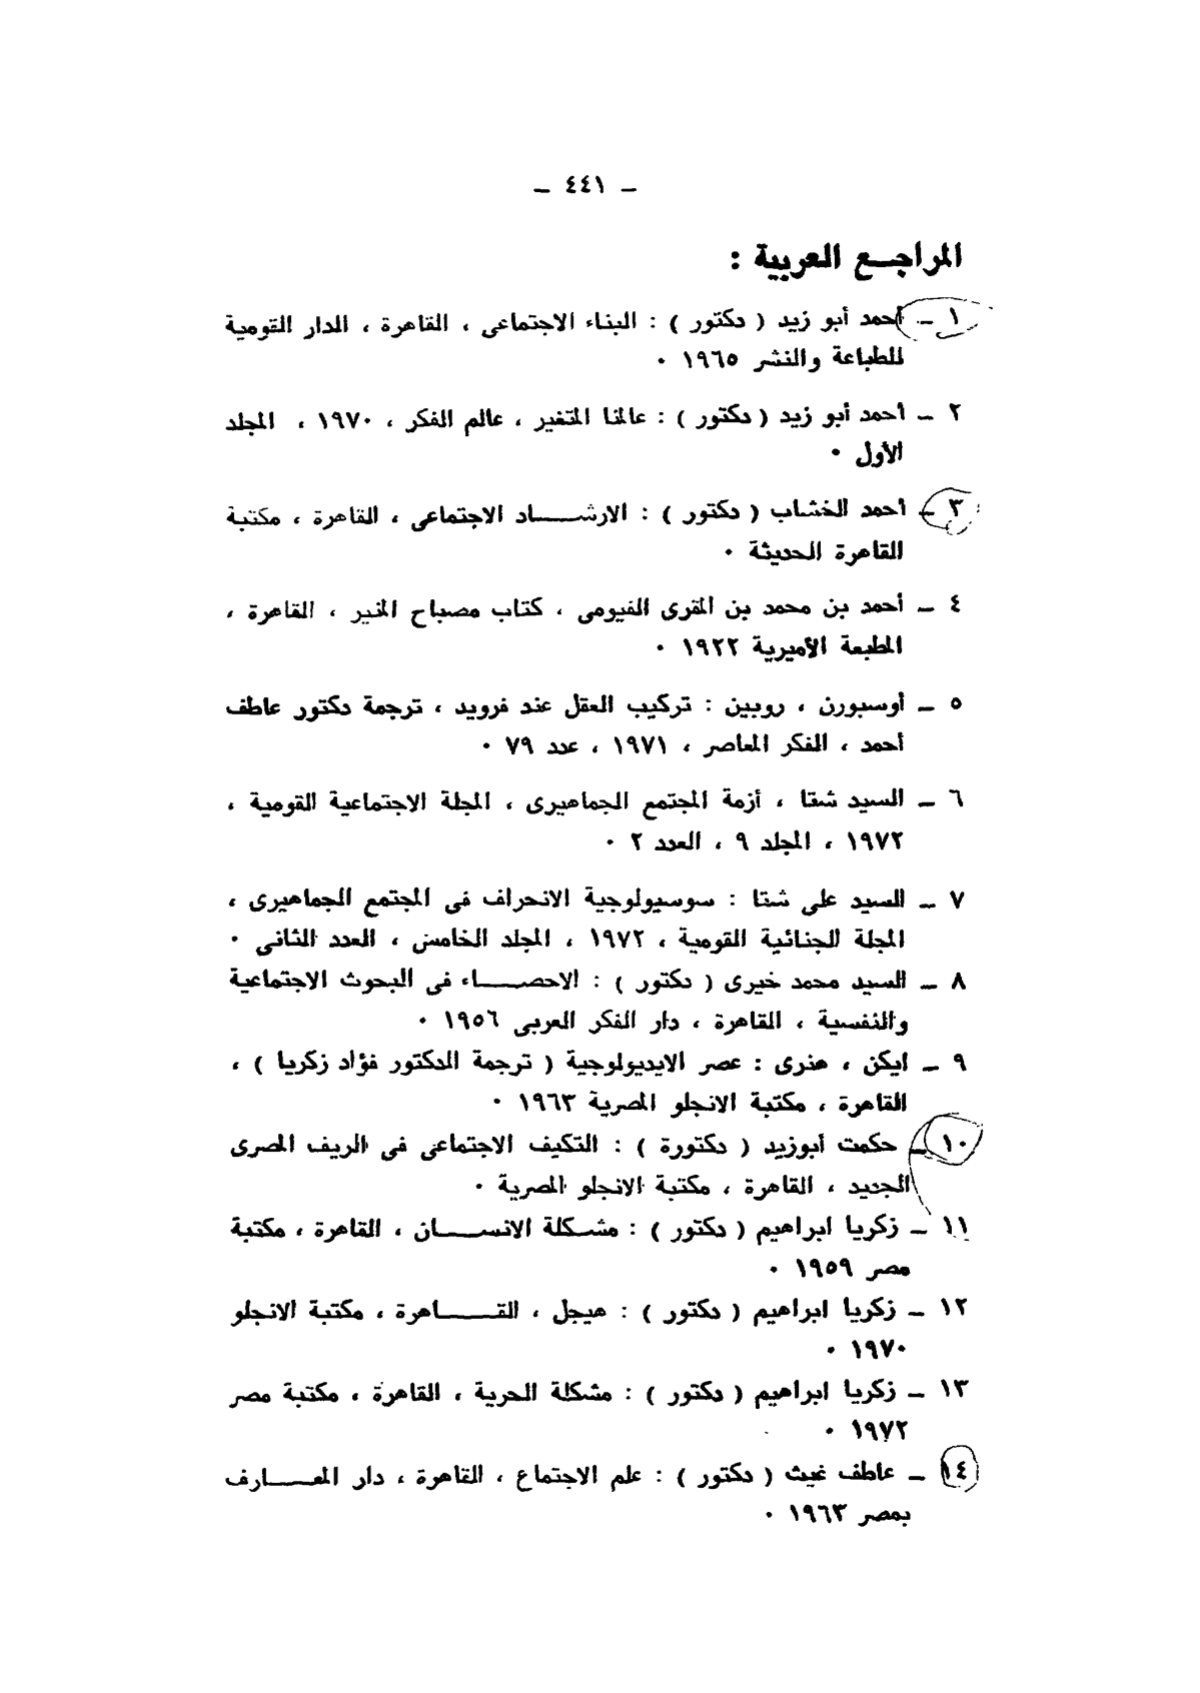 ـ ٤٤١ ـ
المراجع العربية :
١ ـ أحمد أبو زيد ( دكتور ) : البناء الاجتماعى ، القاهرة ، الدار القومية
للطباعة والنشر ١٩٦٥ ٠
٢ ـ أحمد أبو زيد ( دكتور ) : عالمنا المتغير ، عالم الفكر ، ١٩٧٠ ، المجلد
الأول ٠
٣ ـ أحمد الخشاب ( دكتور ) : الارشاد الاجتماعى ، القاهرة ، مكتبة
القاهرة الحديثة ٠
٤ ـ أحمد بن محمد بن المقرى الفيومى ، كتاب مصباح المنير ، القاهرة ،
المطبعة الأميرية ١٩٢٢ ٠
٥ ـ أوسبورن ، روبين : تركيب العقل عند فرويد ، ترجمة دكتور عاطف
أحمد ، الفكر المعاصر ، ١٩٧١ ، عدد ٧٩ ٠
٦ ـ السيد شتا ، أزمة المجتمع الجماهيرى ، المجلة الاجتماعية القومية ،
١٩٧٢ ، المجلد ٩ ، العدد ٢ ٠
٧ ـ السيد على شتا : سوسيولوجية الانحراف فى المجتمع الجماهيرى ،
المجلة الجنائية القومية ، ١٩٧٢ ، المجلد الخامس ، العدد الثانى ٠
٨ ـ السيد محمد خيرى ( دكتور ) : الاحصاء فى البحوث الاجتماعية
والنفسية ، القاهرة ، دار الفكر العربى ١٩٥٦ ٠
٩ ـ ايكن ، هنرى : عصر الايديولوجية ( ترجمة الدكتور فؤاد زكريا ) ،
القاهرة ، مكتبة الانجلو المصرية ١٩٦٣ ٠
١٠ ـ حكمت أبوزيد ( دكتورة ) : التكيف الاجتماعى فى الريف المصرى
الجديد ، القاهرة ، مكتبة الانجلو المصرية ٠
١١ ـ زكريا ابراهيم ( دكتور ) : مشكلة الانسان ، القاهرة ، مكتبة
مصر ١٩٥٩ ٠
١٢ ـ زكريا ابراهيم ( دكتور ) : هيجل ، القاهرة ، مكتبة الانجلو
١٩٧٠ ٠
١٣ ـ زكريا ابراهيم ( دكتور ) : مشكلة الحرية ، القاهرة ، مكتبة مصر
١٩٧٢ ٠
١٤ ـ عاطف غيث ( دكتور ) : علم الاجتماع ، القاهرة ، دار المعارف
بمصر ١٩٦٣ ٠